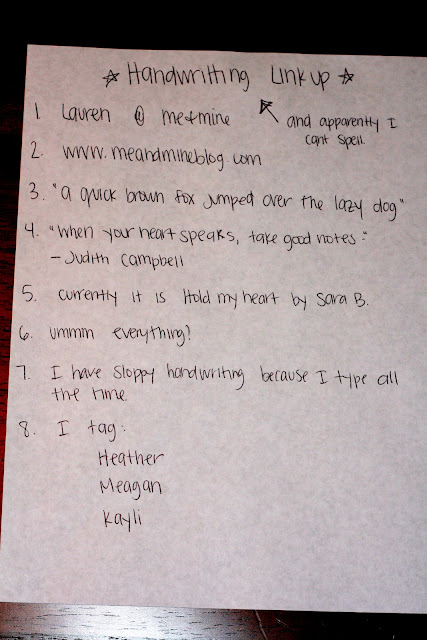 ☆ Handwritting Link up ☆
1 Lauren @ me+mine
and apparently I
cant spell.
2. www.meandmineblog.com
3. "a quick brown fox jumped over the lazy dog"
4. "when your heart speaks, take good notes."
- Judith Campbell
5. currently it is Hold my heart by Sara B.
6. ummm everything?
7. I have sloppy handwriting because I type all
the time.
8. I tag:
Heather
Meagan
Kayli